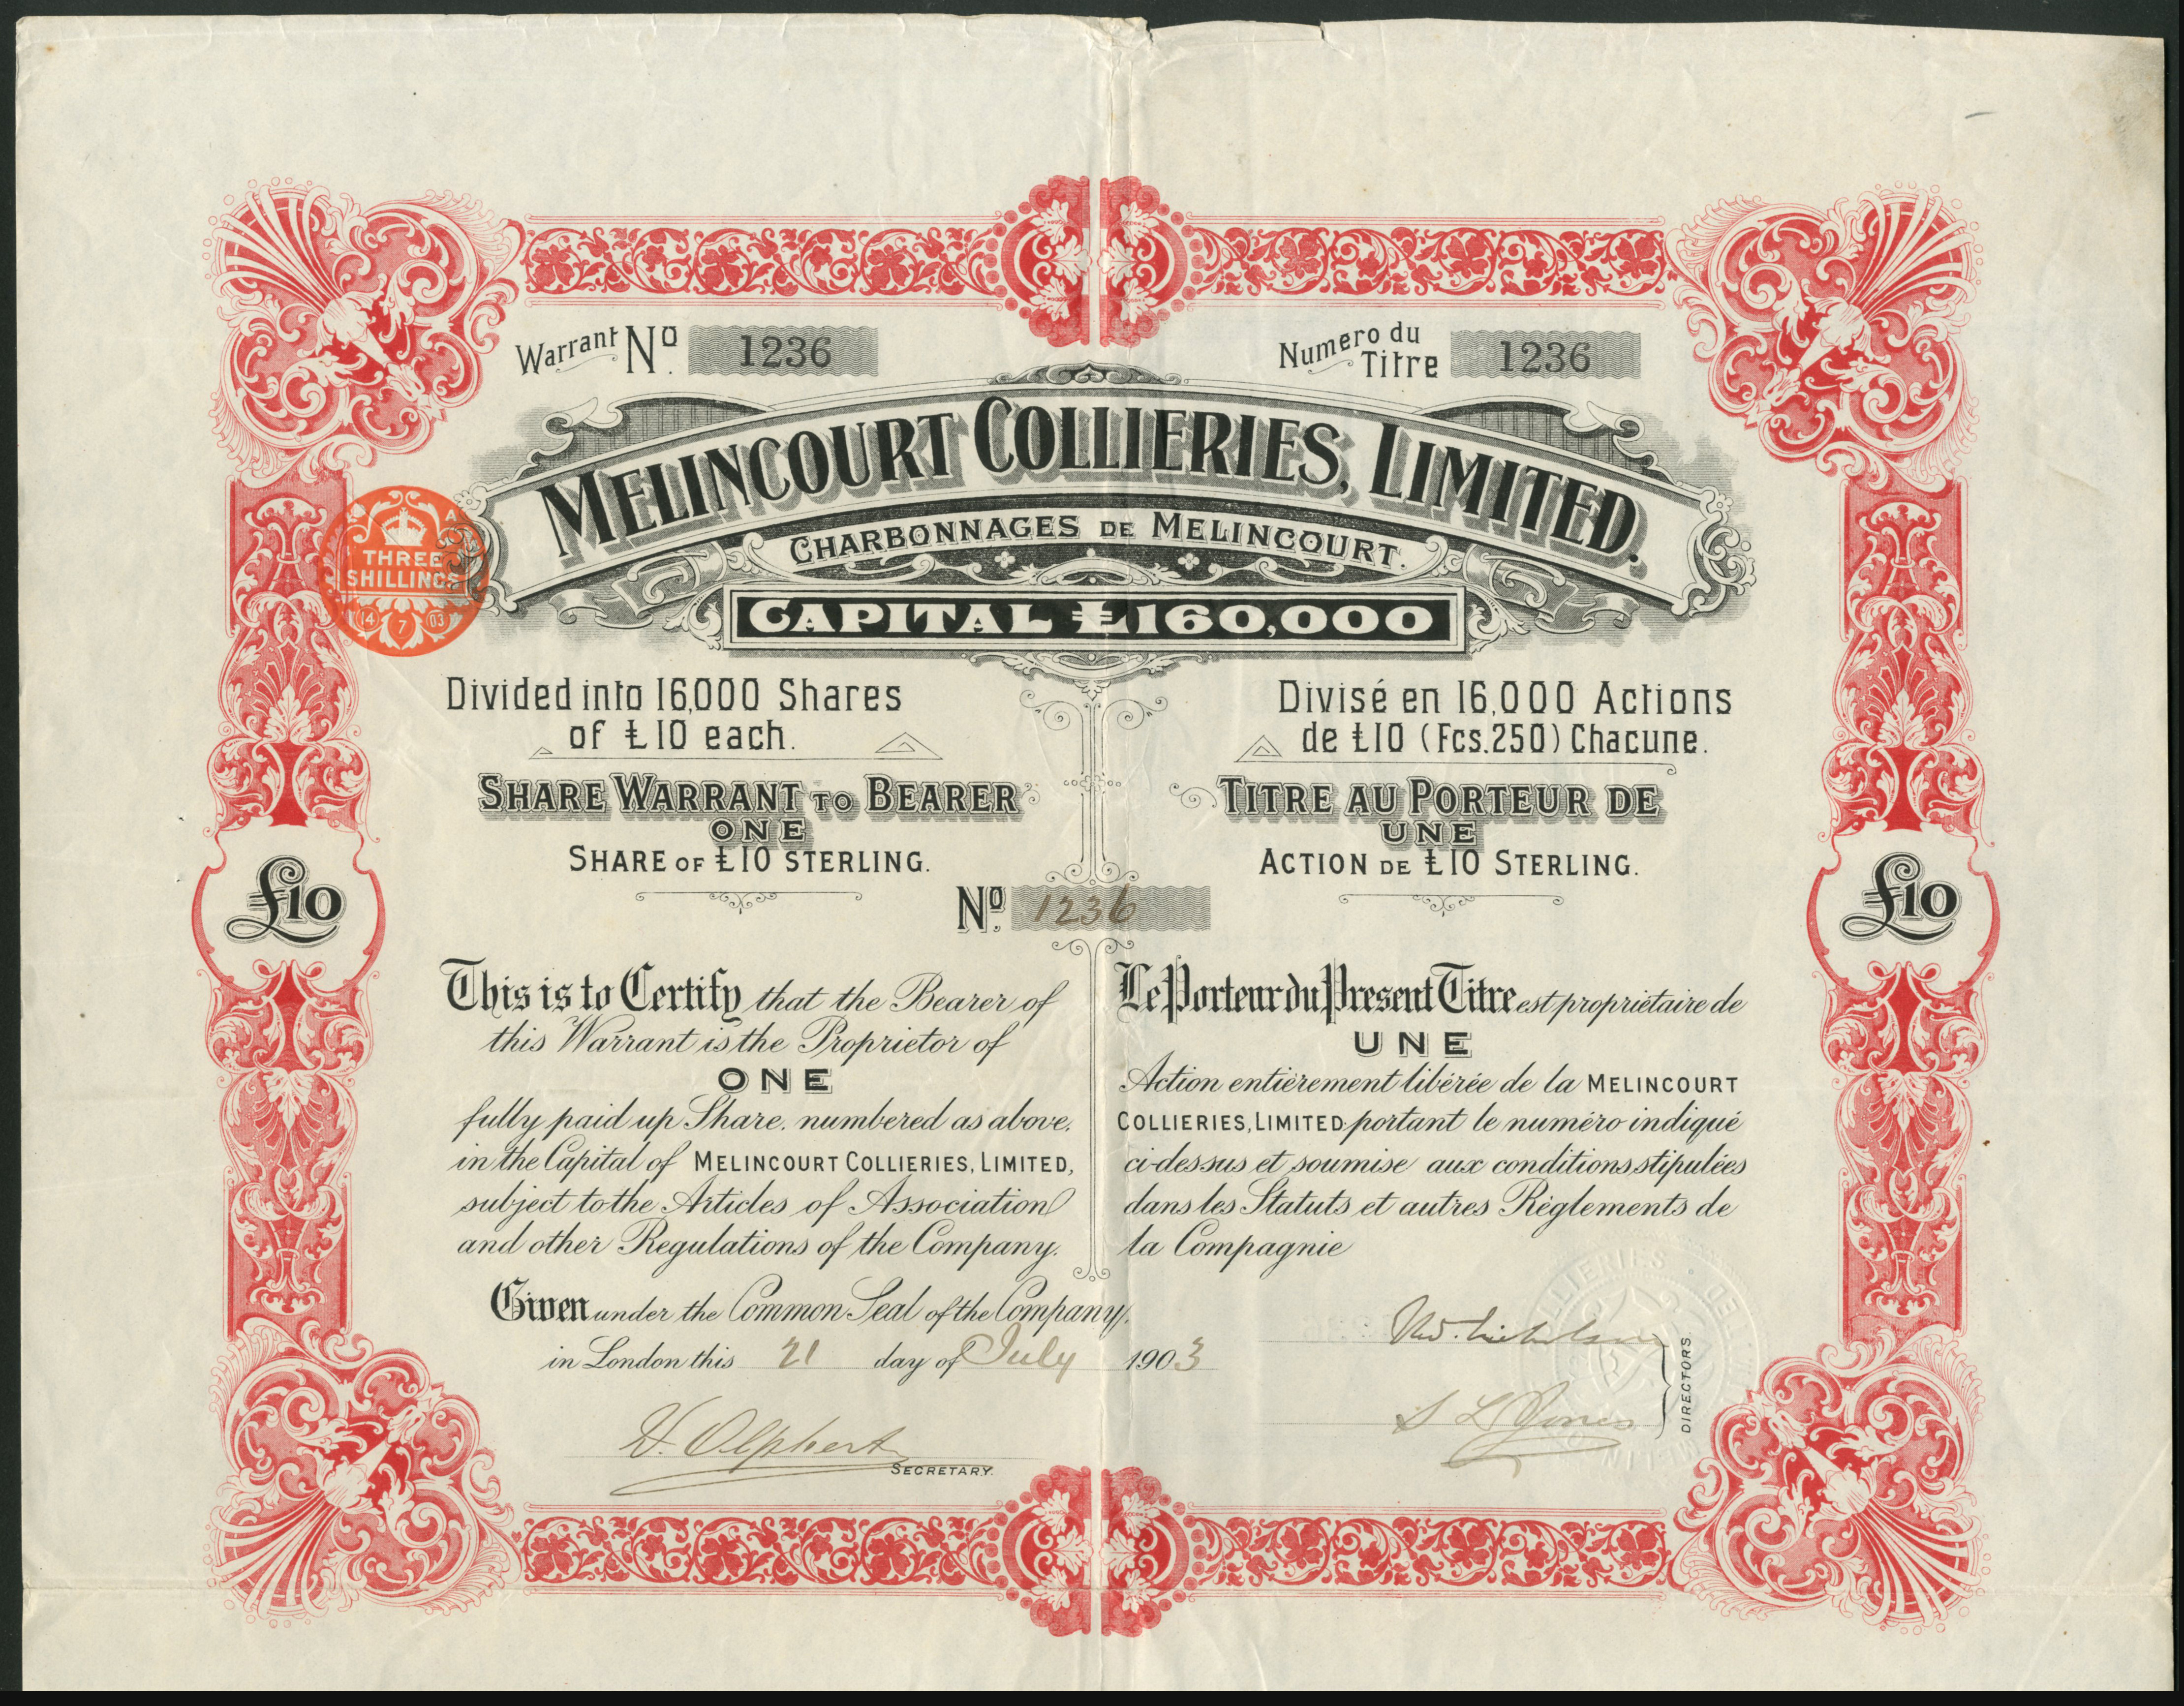 Warrant No. 1236
Numero du Titre 1236
MELINCOURT COLLIERIES, LIMITED.
CHARBONNAGES DE MELINCOURT.
CAPITAL £160,000
A
THREE
SHILLINGS
14 7 03
Divided into 16,000 Shares
of £10 each.
SHARE WARRANT TO BEARER
ONE
SHARE OF £10 STERLING.
Divisé en 16,000 Actions
de £10 (Fcs.250) Chacune.
TITRE AU PORTEUR DE
UNE
ACTION DE £10 STERLING.
£10
£10
No. 1236
This is to Certify that the Bearer of
this Warrant is the Proprietor of
ONE
fully paid up Share, numbered as above,
in the Capital of MELINCOURT COLLIERIES, LIMITED,
subject to the Articles of Association
and other Regulations of the Company.
Le Porteur du Présent Titre est propriétaire de
UNE
Action entièrement libérée de la MELINCOURT
COLLIERIES, LIMITED portant le numéro indiqué
ci-dessus et soumise aux conditions stipulées
dans les Statuts et autres Règlements de
la Compagnie
Given under the Common Seal of the Company,
in London this 21 day of July 1903
SECRETARY.
S L Jones
DIRECTORS